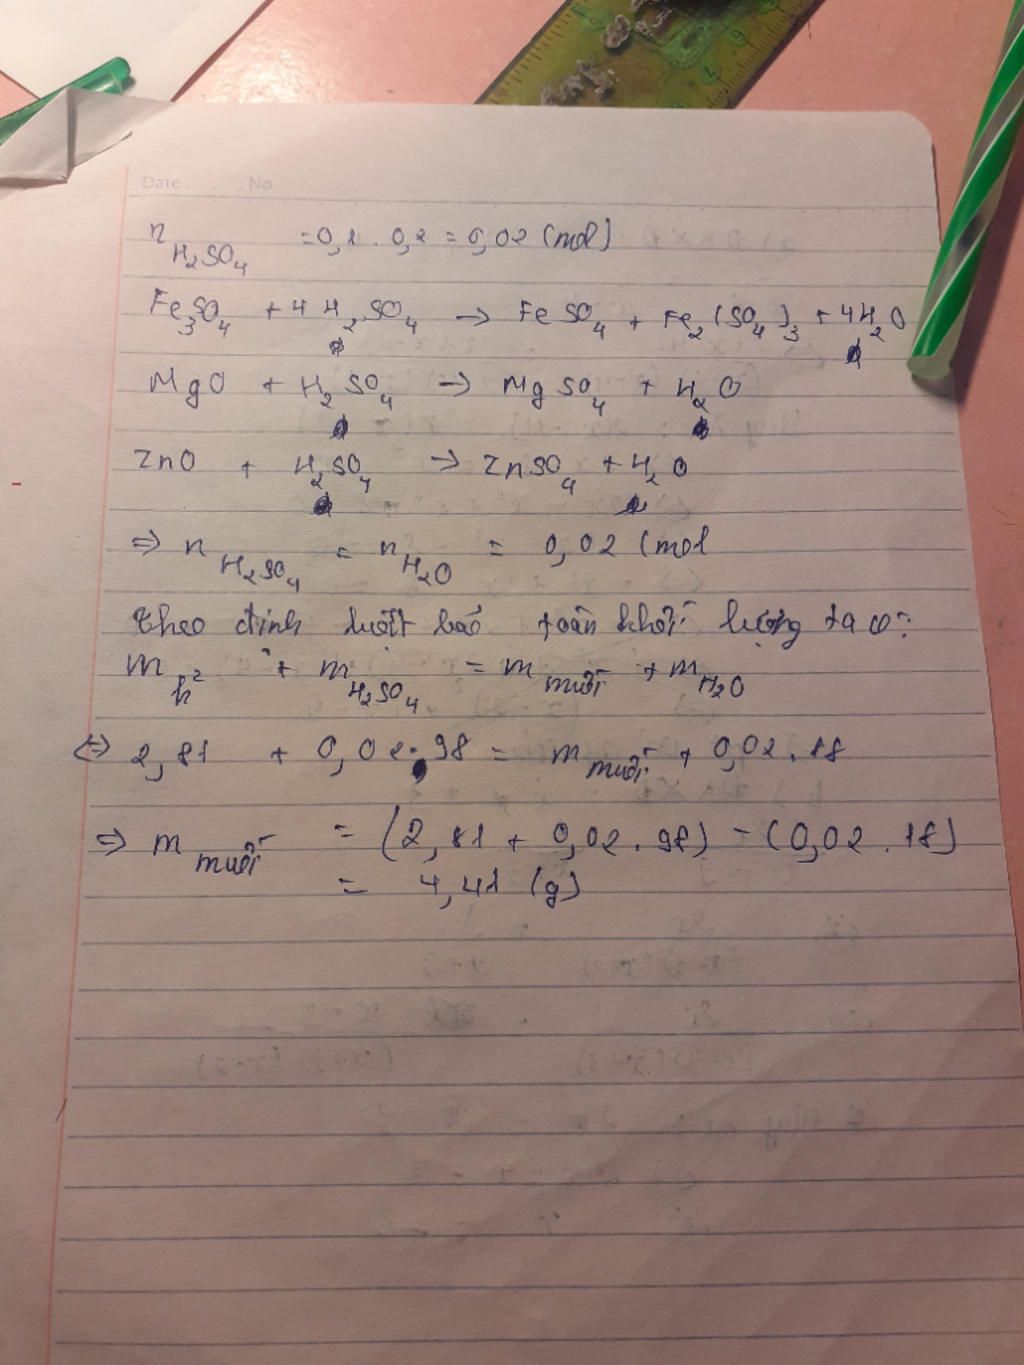 Date. . . . No
n H₂SO₄ = 0,1 . 0,2 = 0,02 (mol)
Fe₃SO₄ + 4 H₂SO₄ → FeSO₄ + Fe₂(SO₄)₃ + 4H₂O
MgO + H₂SO₄ → MgSO₄ + H₂O
ZnO + H₂SO₄ → ZnSO₄ + H₂O
=> n H₂SO₄ = n H₂O = 0,02 (mol
Theo định luật bảo toàn khối lượng ta có:
m h² + m H₂SO₄ = m muối + m H₂O
<=> 2,81 + 0,02.98 = m muối + 0,02.18
=> m muối = (2,81 + 0,02.98) - (0,02.18)
= 4,41 (g)